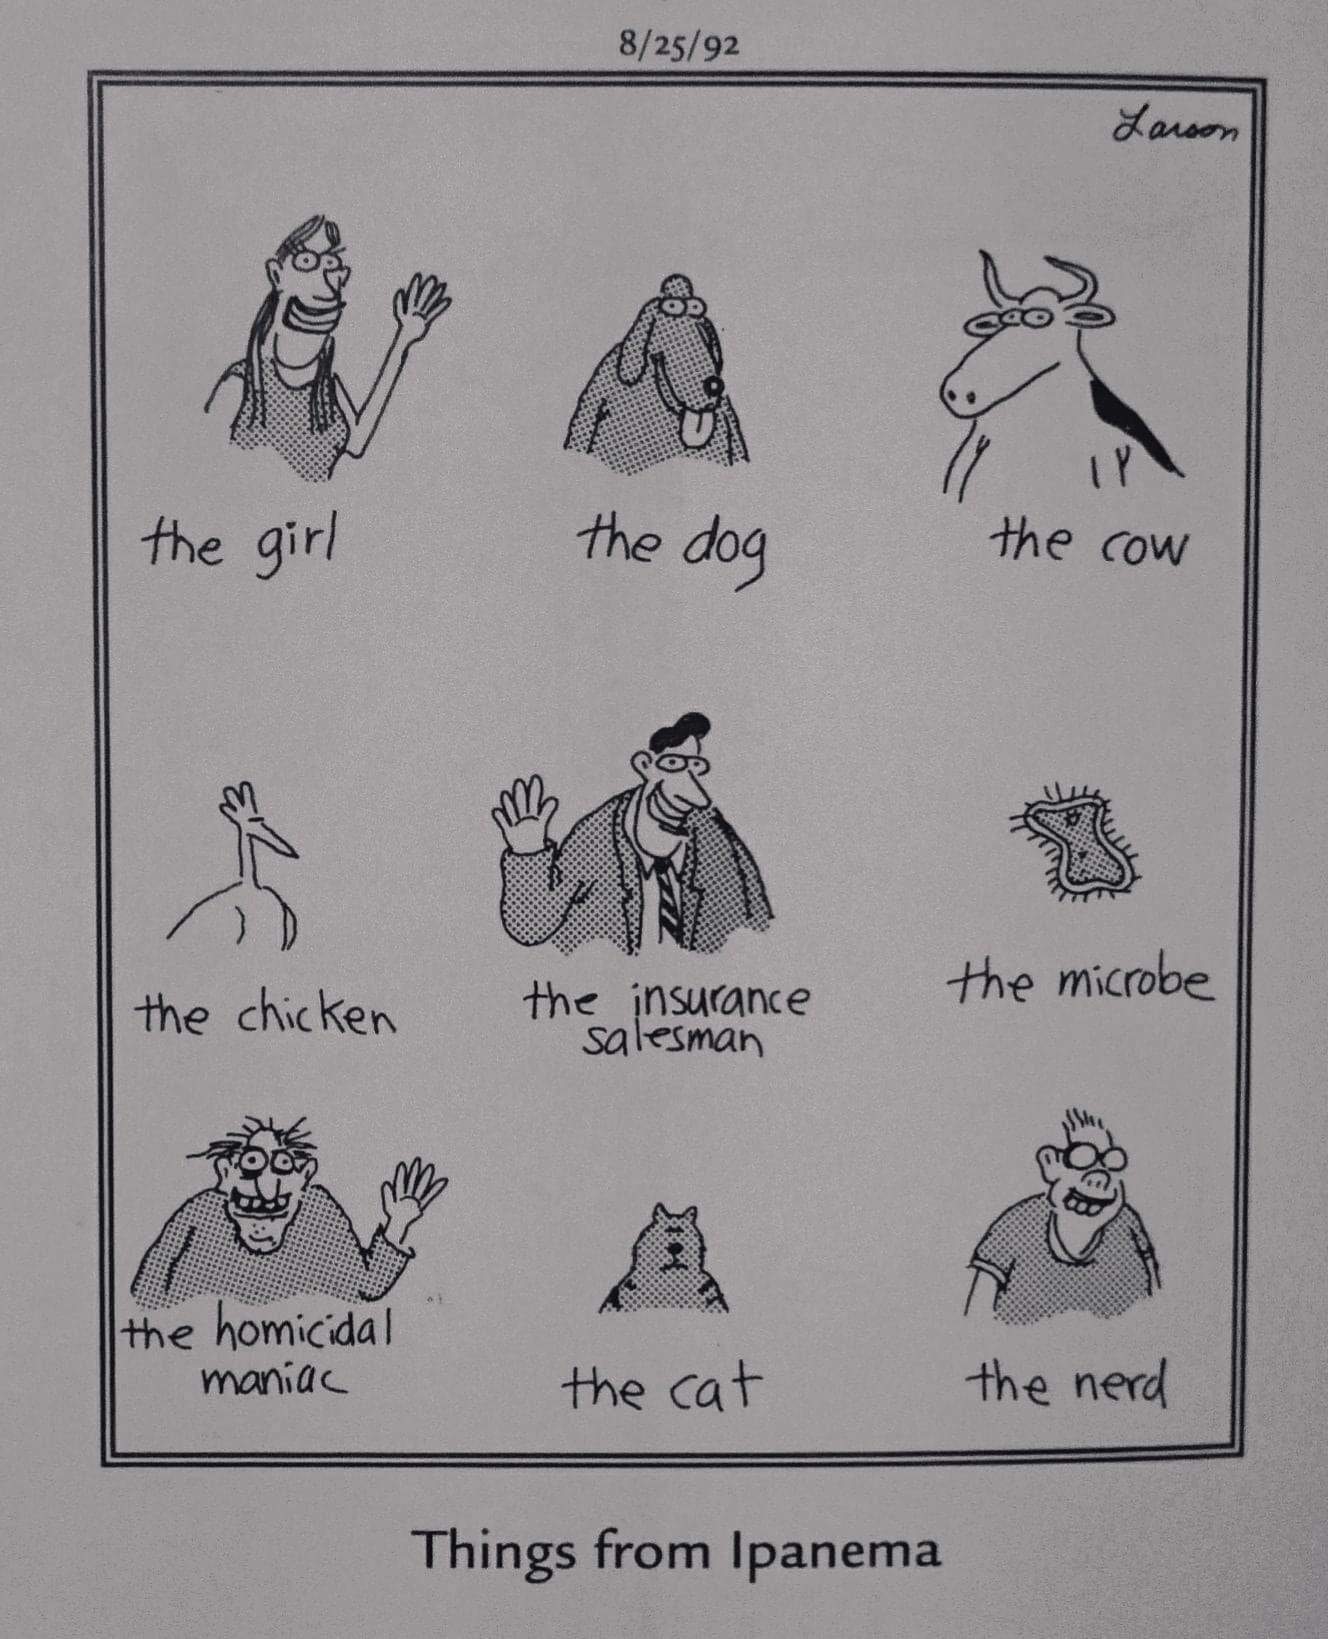 8/25/92
Larson
the girl
the dog
the cow
the chicken
the insurance
salesman
the microbe
the homicidal
maniac
the cat
the nerd
Things from Ipanema